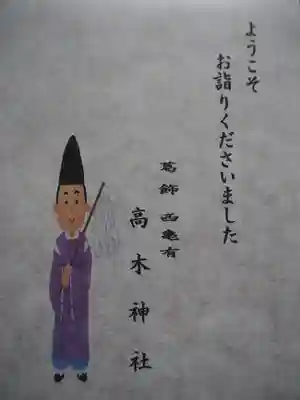 ようこそ
お詣りくださいました
葛飾 西亀有
高木神社